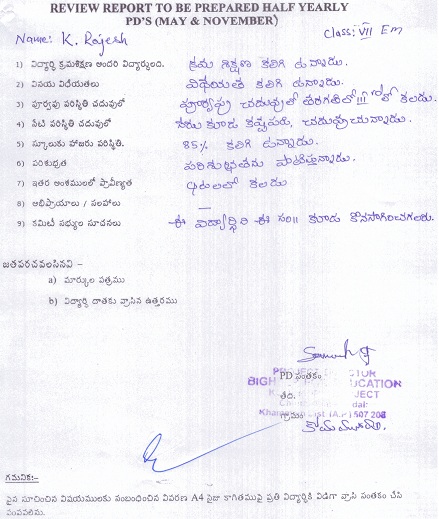 REVIEW REPORT TO BE PREPARED HALF YEARLY
PD'S (MAY & NOVEMBER)
Name: K. Rajesh Class: VII EM
1) విద్యార్థి క్రమశిక్షణ అందరి విద్యార్థులది. క్రమ శిక్షణ కలిగి ఉన్నాడు.
2) వినయ విధేయతలు విధేయత కలిగి ఉన్నాడు.
3) పూర్వపు పరిస్థితి చదువులో పూర్వపు చదువులో తరగతిలో III లో కలడు.
4) నేటి పరిస్థితి చదువులో నేడు కూడ కష్టపడి, చదువుచున్నాడు.
5) స్కూలుకు హాజరు పరిస్థితి. 85% కలిగి ఉన్నాడు.
6) పరిశుభ్రత పరిశుభ్రతను పాటిస్తున్నాడు.
7) ఇతర అంశములలో ప్రావీణ్యత ఆటలలో కలడు
8) అభిప్రాయాలు / సలహాలు
9) కమిటీ సభ్యుల సూచనలు ఈ విద్యార్థిని ఈ సం॥ కూడు కొనసాగించగలరు.
జతపరచవలసినవి :-
a) మార్కుల పత్రము
b) విద్యార్థి దాతకు వ్రాసిన ఉత్తరము
PD సంతకం
తేది.
గ్రామం
గమనిక:-
పైన సూచించిన విషయములకు సంబంధించిన వివరణ A4 సైజు కాగితముపై ప్రతి విద్యార్థికి విడిగా వ్రాసి సంతకం చేసి
పంపవలెను.